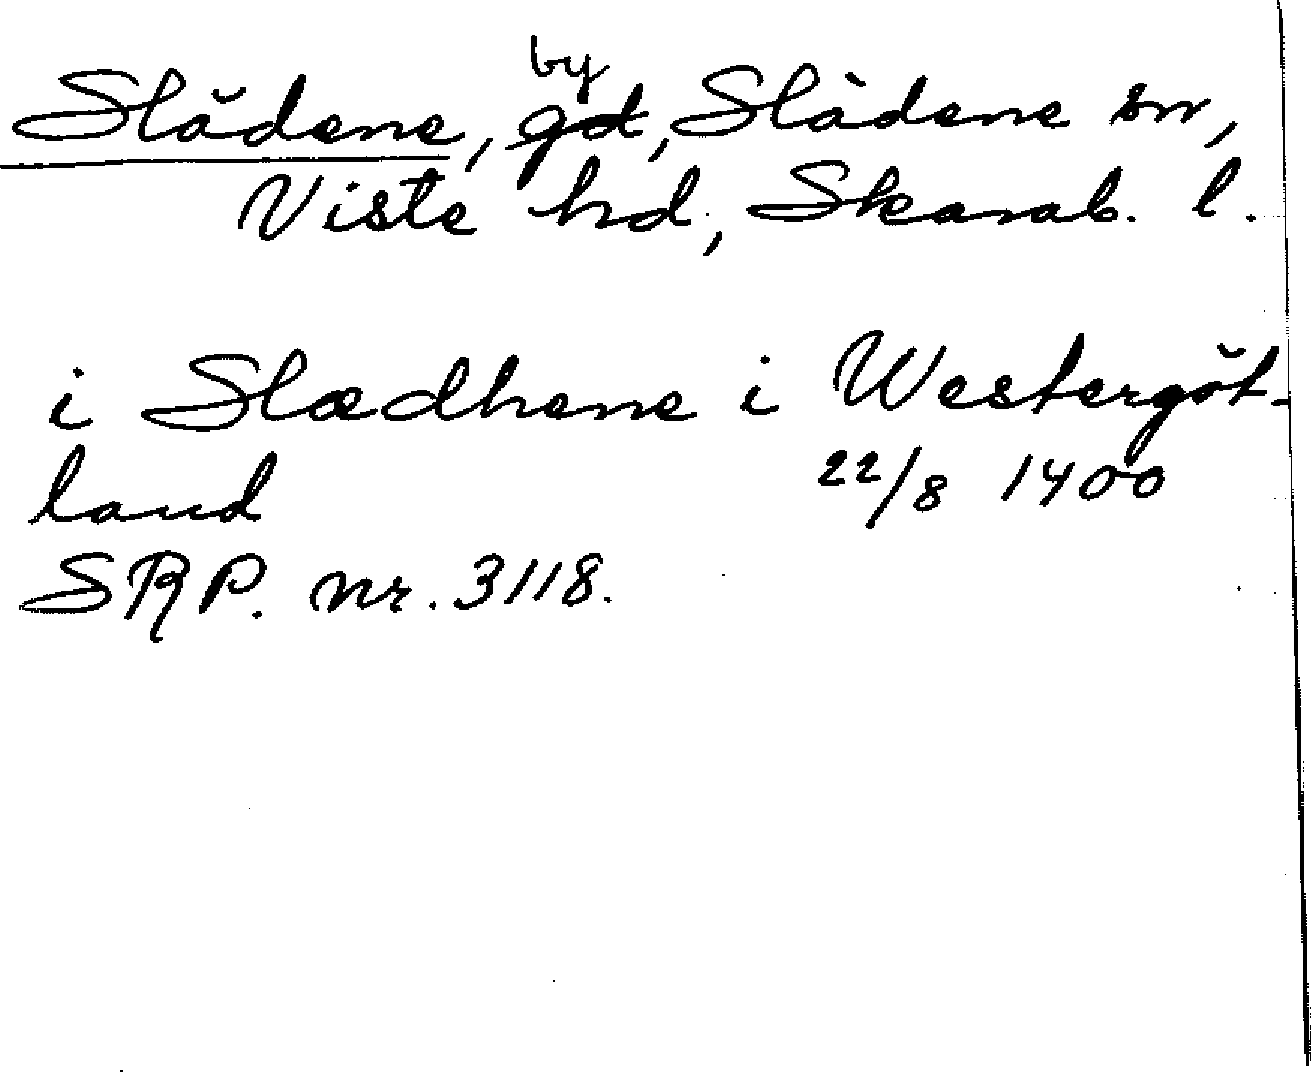 by
Slädene, gd, Slädene sn,
Viste hd, Skarab. l.
i Slædhene i Westergöt-
land 22/8 1400
SRP. nr. 3118.